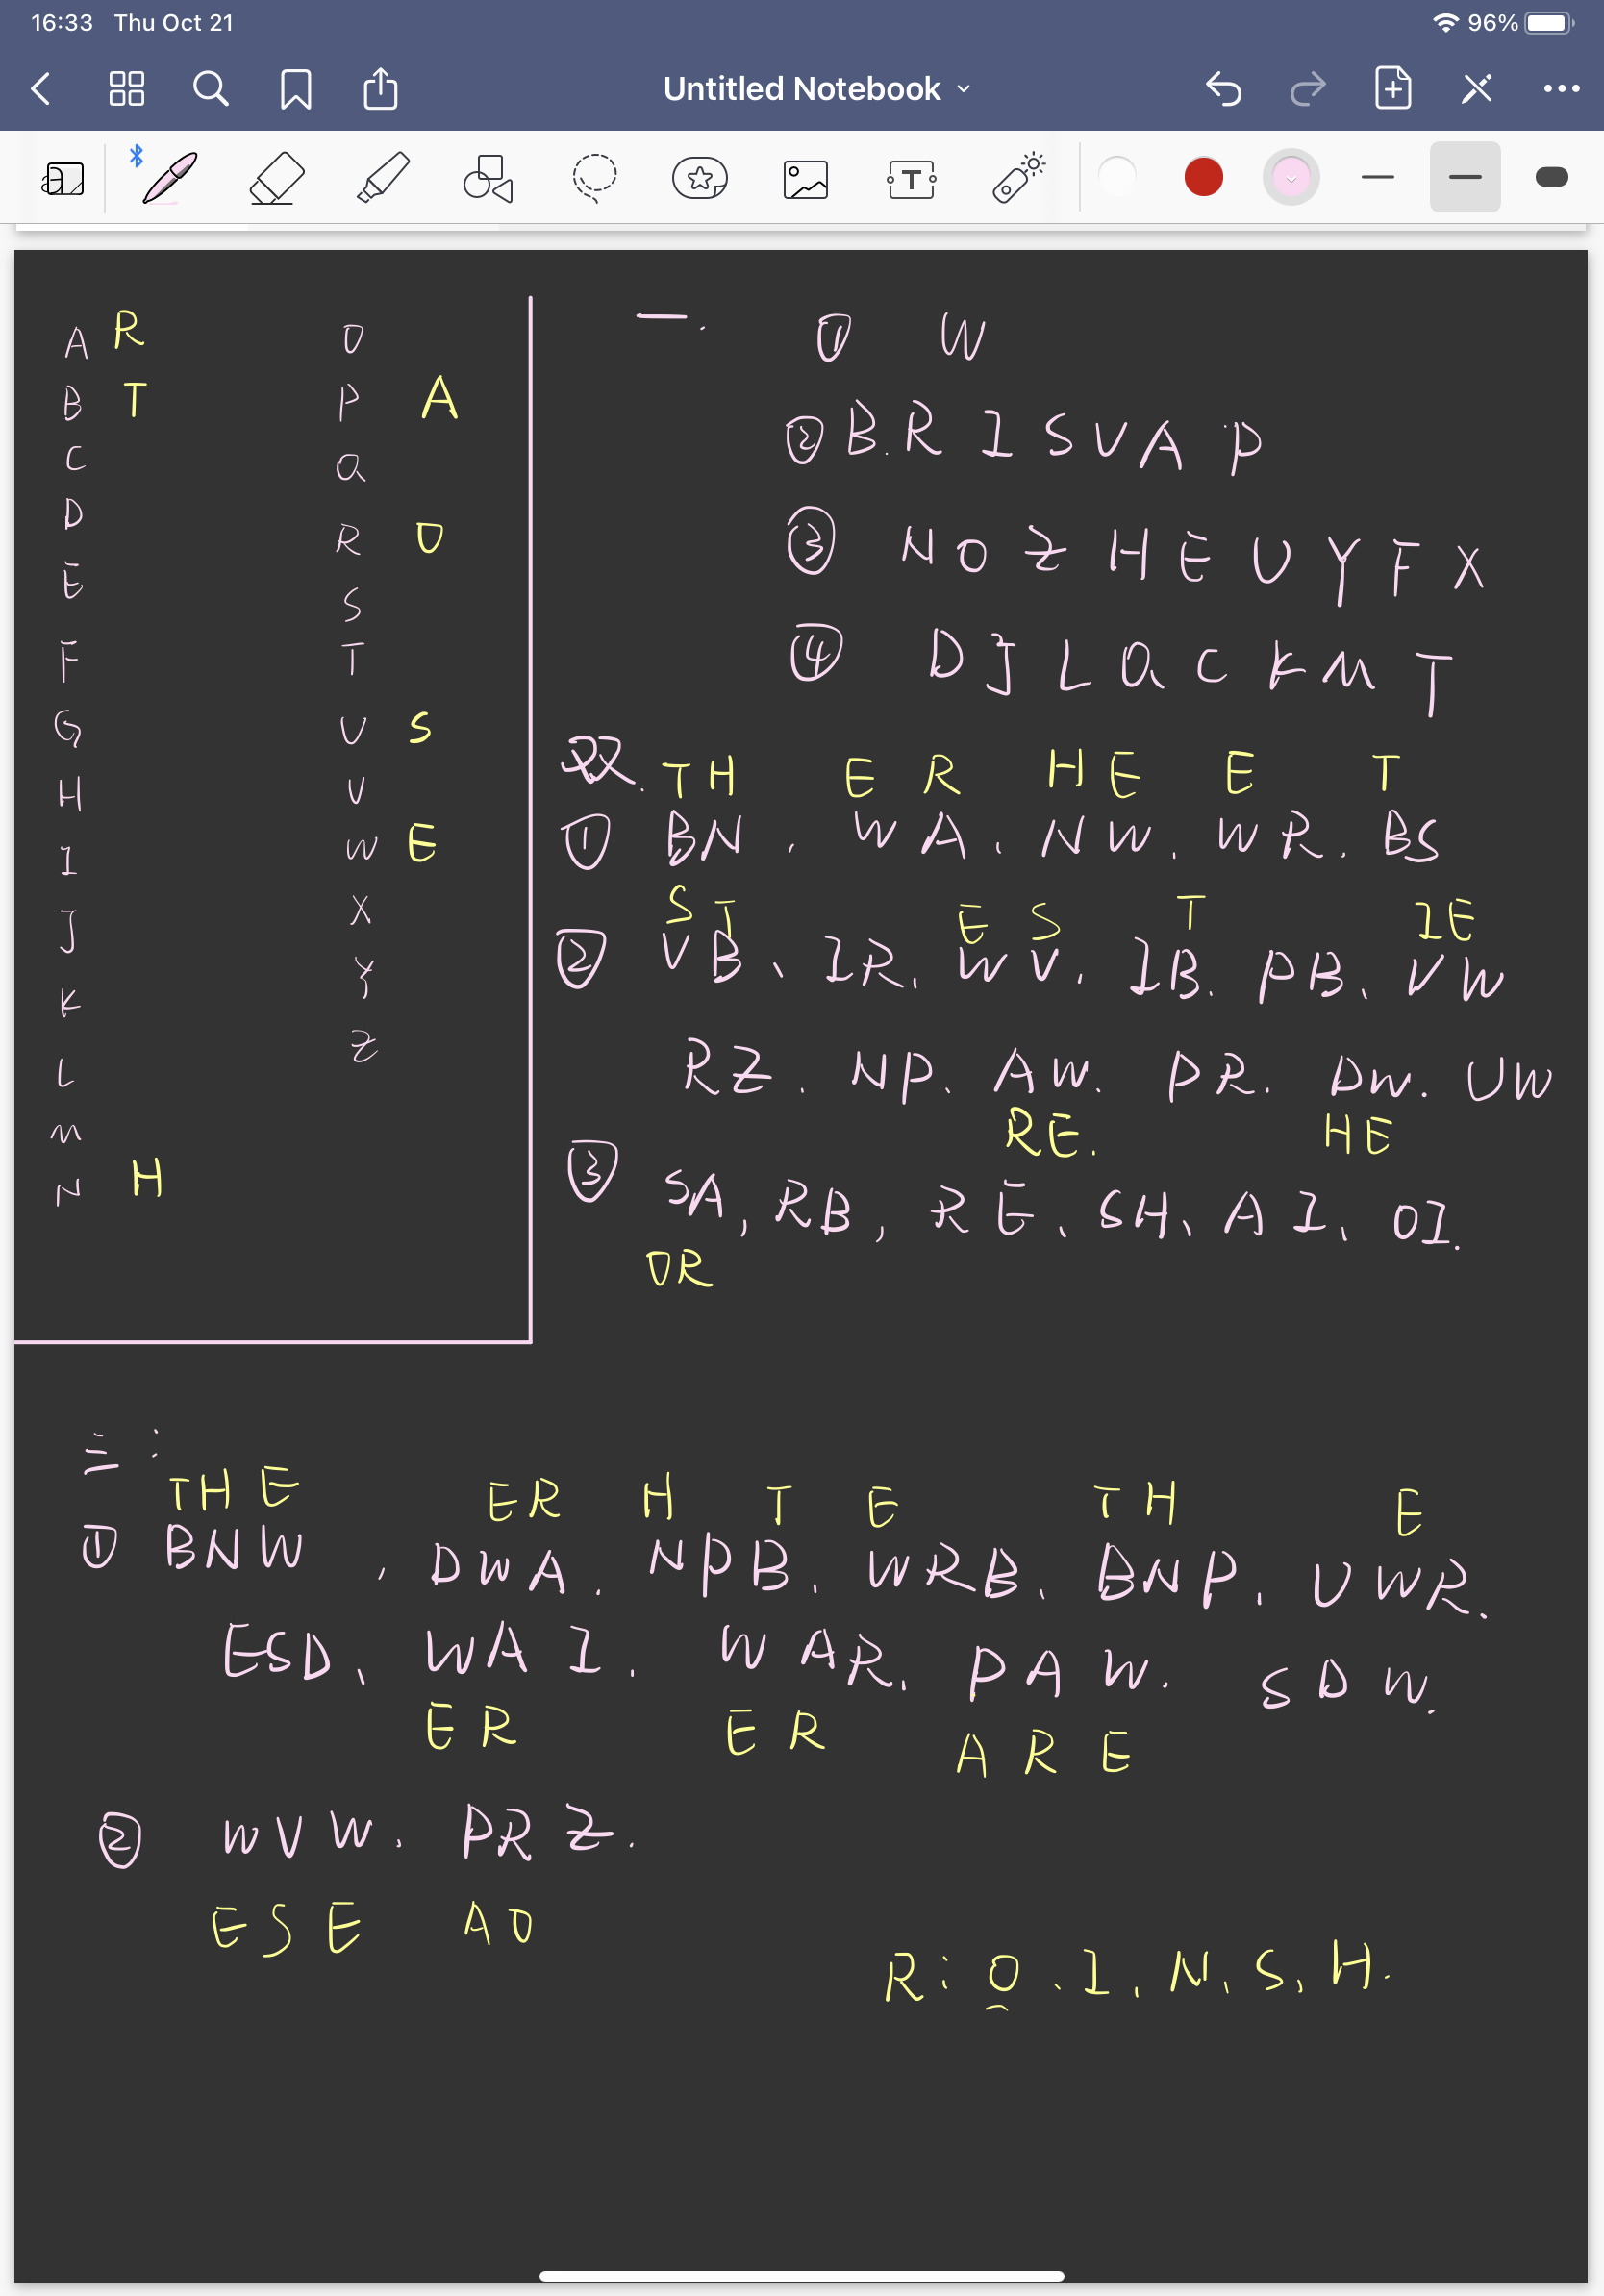 16:33 Thu Oct 21 96%
Untitled Notebook
A R
B T
C
D
E
F
G
H
I
J
K
L
M
N H
O
P A
Q
R O
S
T
U S
V
W E
X
Y
Z
一. ① W
② B. R I S V A P
③ N O Z H E U Y F X
④ D J L Q C K M T
双. TH E R HE E T
① BN. WA. NW. WR. BS
S T E S T IE
② VB、IR. WV. IB. PB、VW
RZ. NP. AW. PR. DW. UW
RE. HE
③ SA, RB, RE、SH、AI、OI.
OR
三:
THE ER H T E TH E
① BNW, DWA. NPB. WRB、BNP. UWR.
ESD、WAI. WAR. PAW. SDW.
ER ER ARE
② WVW. PRZ.
ESE AO
R: O. I. N. S. H.